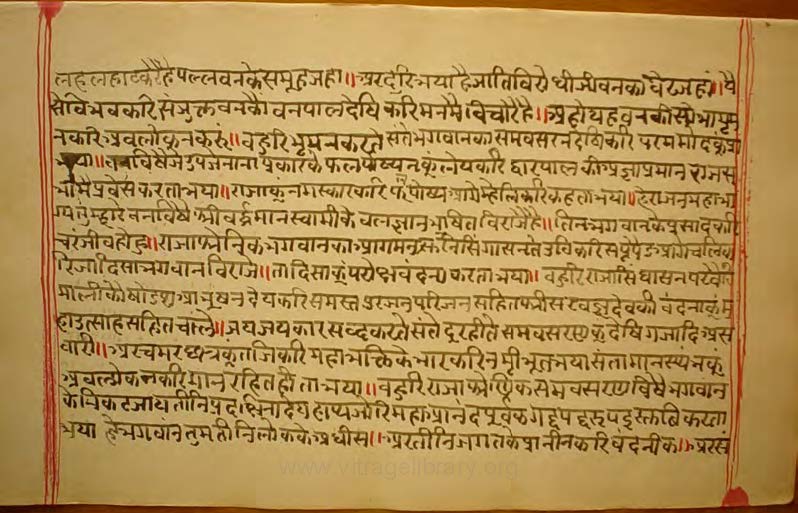 लहलहाट करै है पल्लव नके समूह जहा॥ अर दूरि भया है जाति विरोधी जीवन का वैर जहां॥ यै
सै विभव करि संजुक्त वन कौ वनपाल देषि करि मनमै विचारै है॥ अहो यह वन की सोभा भ्रम
न करि अवलोकन करूं॥ बहुरि भ्रमन करते संते भगवान का समवसरन देषि करि परम मोद कूं प्रा
भया॥ वनविषै जे उपजे नाना प्रकार के फल पोष्पनकूं लेय करि द्वारपाल की प्रज्ञा प्रमान राजस
भामै प्रवेस करता भया॥ राजाकू नमस्कार करि फल पोष्प आगै म्हेलि करि कहता भया॥ हे राजन महाभा
ग्य तुम्हारे वनविषै श्री वर्द्धमान स्वामी केवलज्ञान भूषित विराजै है॥ तिन भगवान के प्रसाद करि
चरंजीव होहु॥ राजा श्रेनिक भगवान का आगमन सुनि सिंगासन तै उठि करि सप्त पैड आगै चलि क
रि जा दिसा भगवान विराजे॥ ता दिसाकूं परोक्ष वंदना करता भया॥ बहुरि राजा सिंघासन पर वैठि
माली कौ षोडश आभूषन देय करि समस्त पुरजन परिजन सहित श्री सरवज्ञ देव की वंदनाकूं म
हा उत्साह सहित चाले॥ जय जयकार सब्द करते संते दूरही तै समवसरणकूं देषि गजादि अस
वारी॥ अर चमर छत्रकूं तजि करि महा भक्ति के भार करि नम्रीभूत भया संता मानस्थनकूं
अवलोकन करि मान रहित होता भया॥ बहुरि राजा श्रेणिक समवसरण विषै भगवान
के निकट जाय तीनि प्रदक्षिना देय हाथ जोरि महा आनंद पूर्वक गद्य पद्य रूप इस्तवि करता
भया हे भगवान तुम तीनि लोक के अधीस॥ अर तीनि जगत के प्रानीन करि वंदनीक॥ अर सं
www.vitragelibrary.org